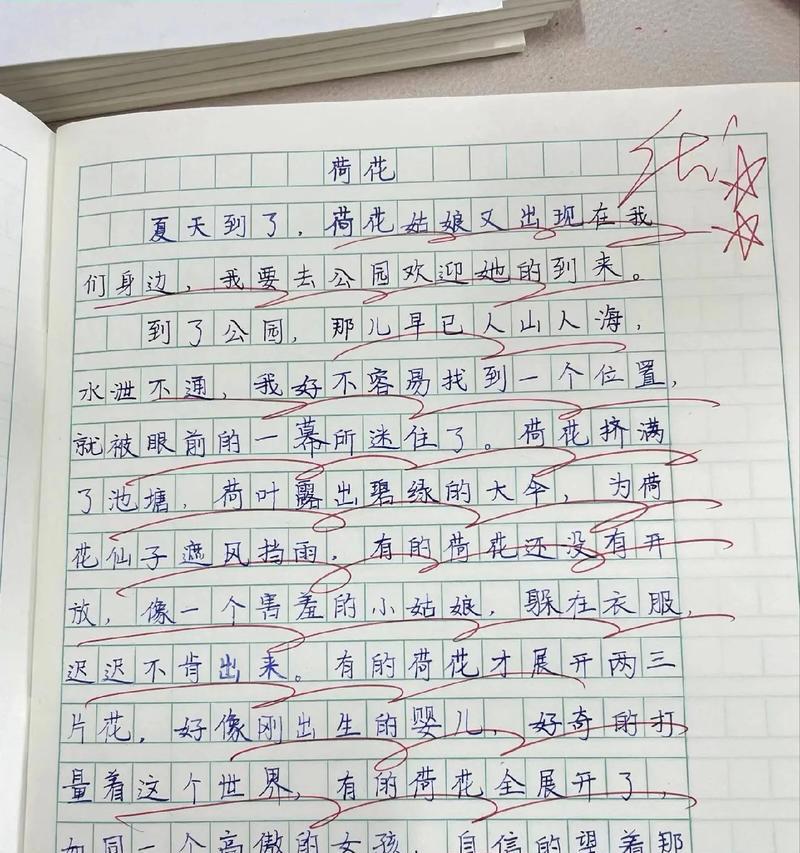 荷花
夏天到了，荷花姑娘又出现在我
们身边，我要去公园欢迎她的到来。
到了公园，那儿早已人山人海，
水泄不通，我好不容易找到一个位置，
就被眼前的一幕所迷住了。荷花挤满
了池塘，荷叶露出碧绿的大伞，为荷
花仙子遮风挡雨，有的荷花还没有开
放，像一个害羞的小姑娘，躲在衣服，
迟迟不肯出来。有的荷花才展开两三
片花，好像刚出生的婴儿，好奇的打
量着这个世界，有的荷花全展开了，
如同一个高傲的女孩，自信的望着那